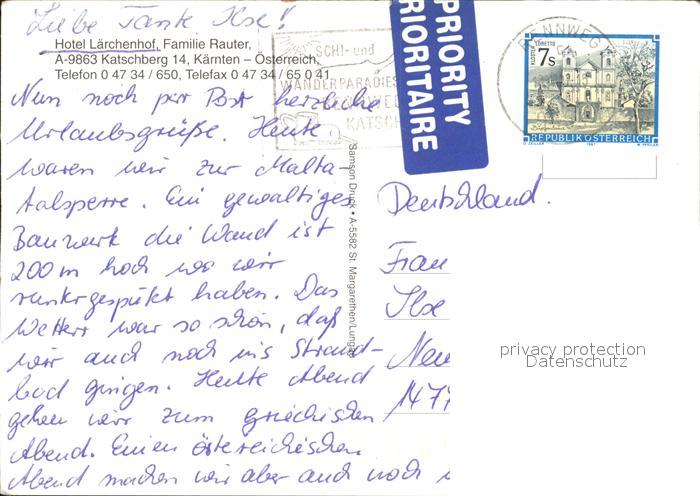 Liebe Tante Ilse!
Hotel Lärchenhof, Familie Rauter,
A-9863 Katschberg 14, Kärnten – Österreich,
Telefon 0 47 34 / 650, Telefax 0 47 34 / 65 0 41
Nun noch per Post herzliche
Urlaubsgrüße. Heute
waren wir zur Malta-
talsperre. Ein gewaltiges
Bauwerk die Wand ist
200 m hoch wo wir
runtergespukt haben. Das
Wetter war so schön, daß
wir auch noch ins Strand-
bad gingen. Heute Abend
gehen wir zum griechischen
Abend. Einen österreichischen
Abend machen wir aber auch noch
SCHI- und
WANDERPARADIES
KATSCH
PRIORITY
PRIORITAIRE
RENNWEG
7s
REPUBLIK ÖSTERREICH
1987
Samson Druck • A-5582 St. Margarethen/Lungau
Deutschland.
Frau
Ilse
Neu
147
privacy protection
Datenschutz